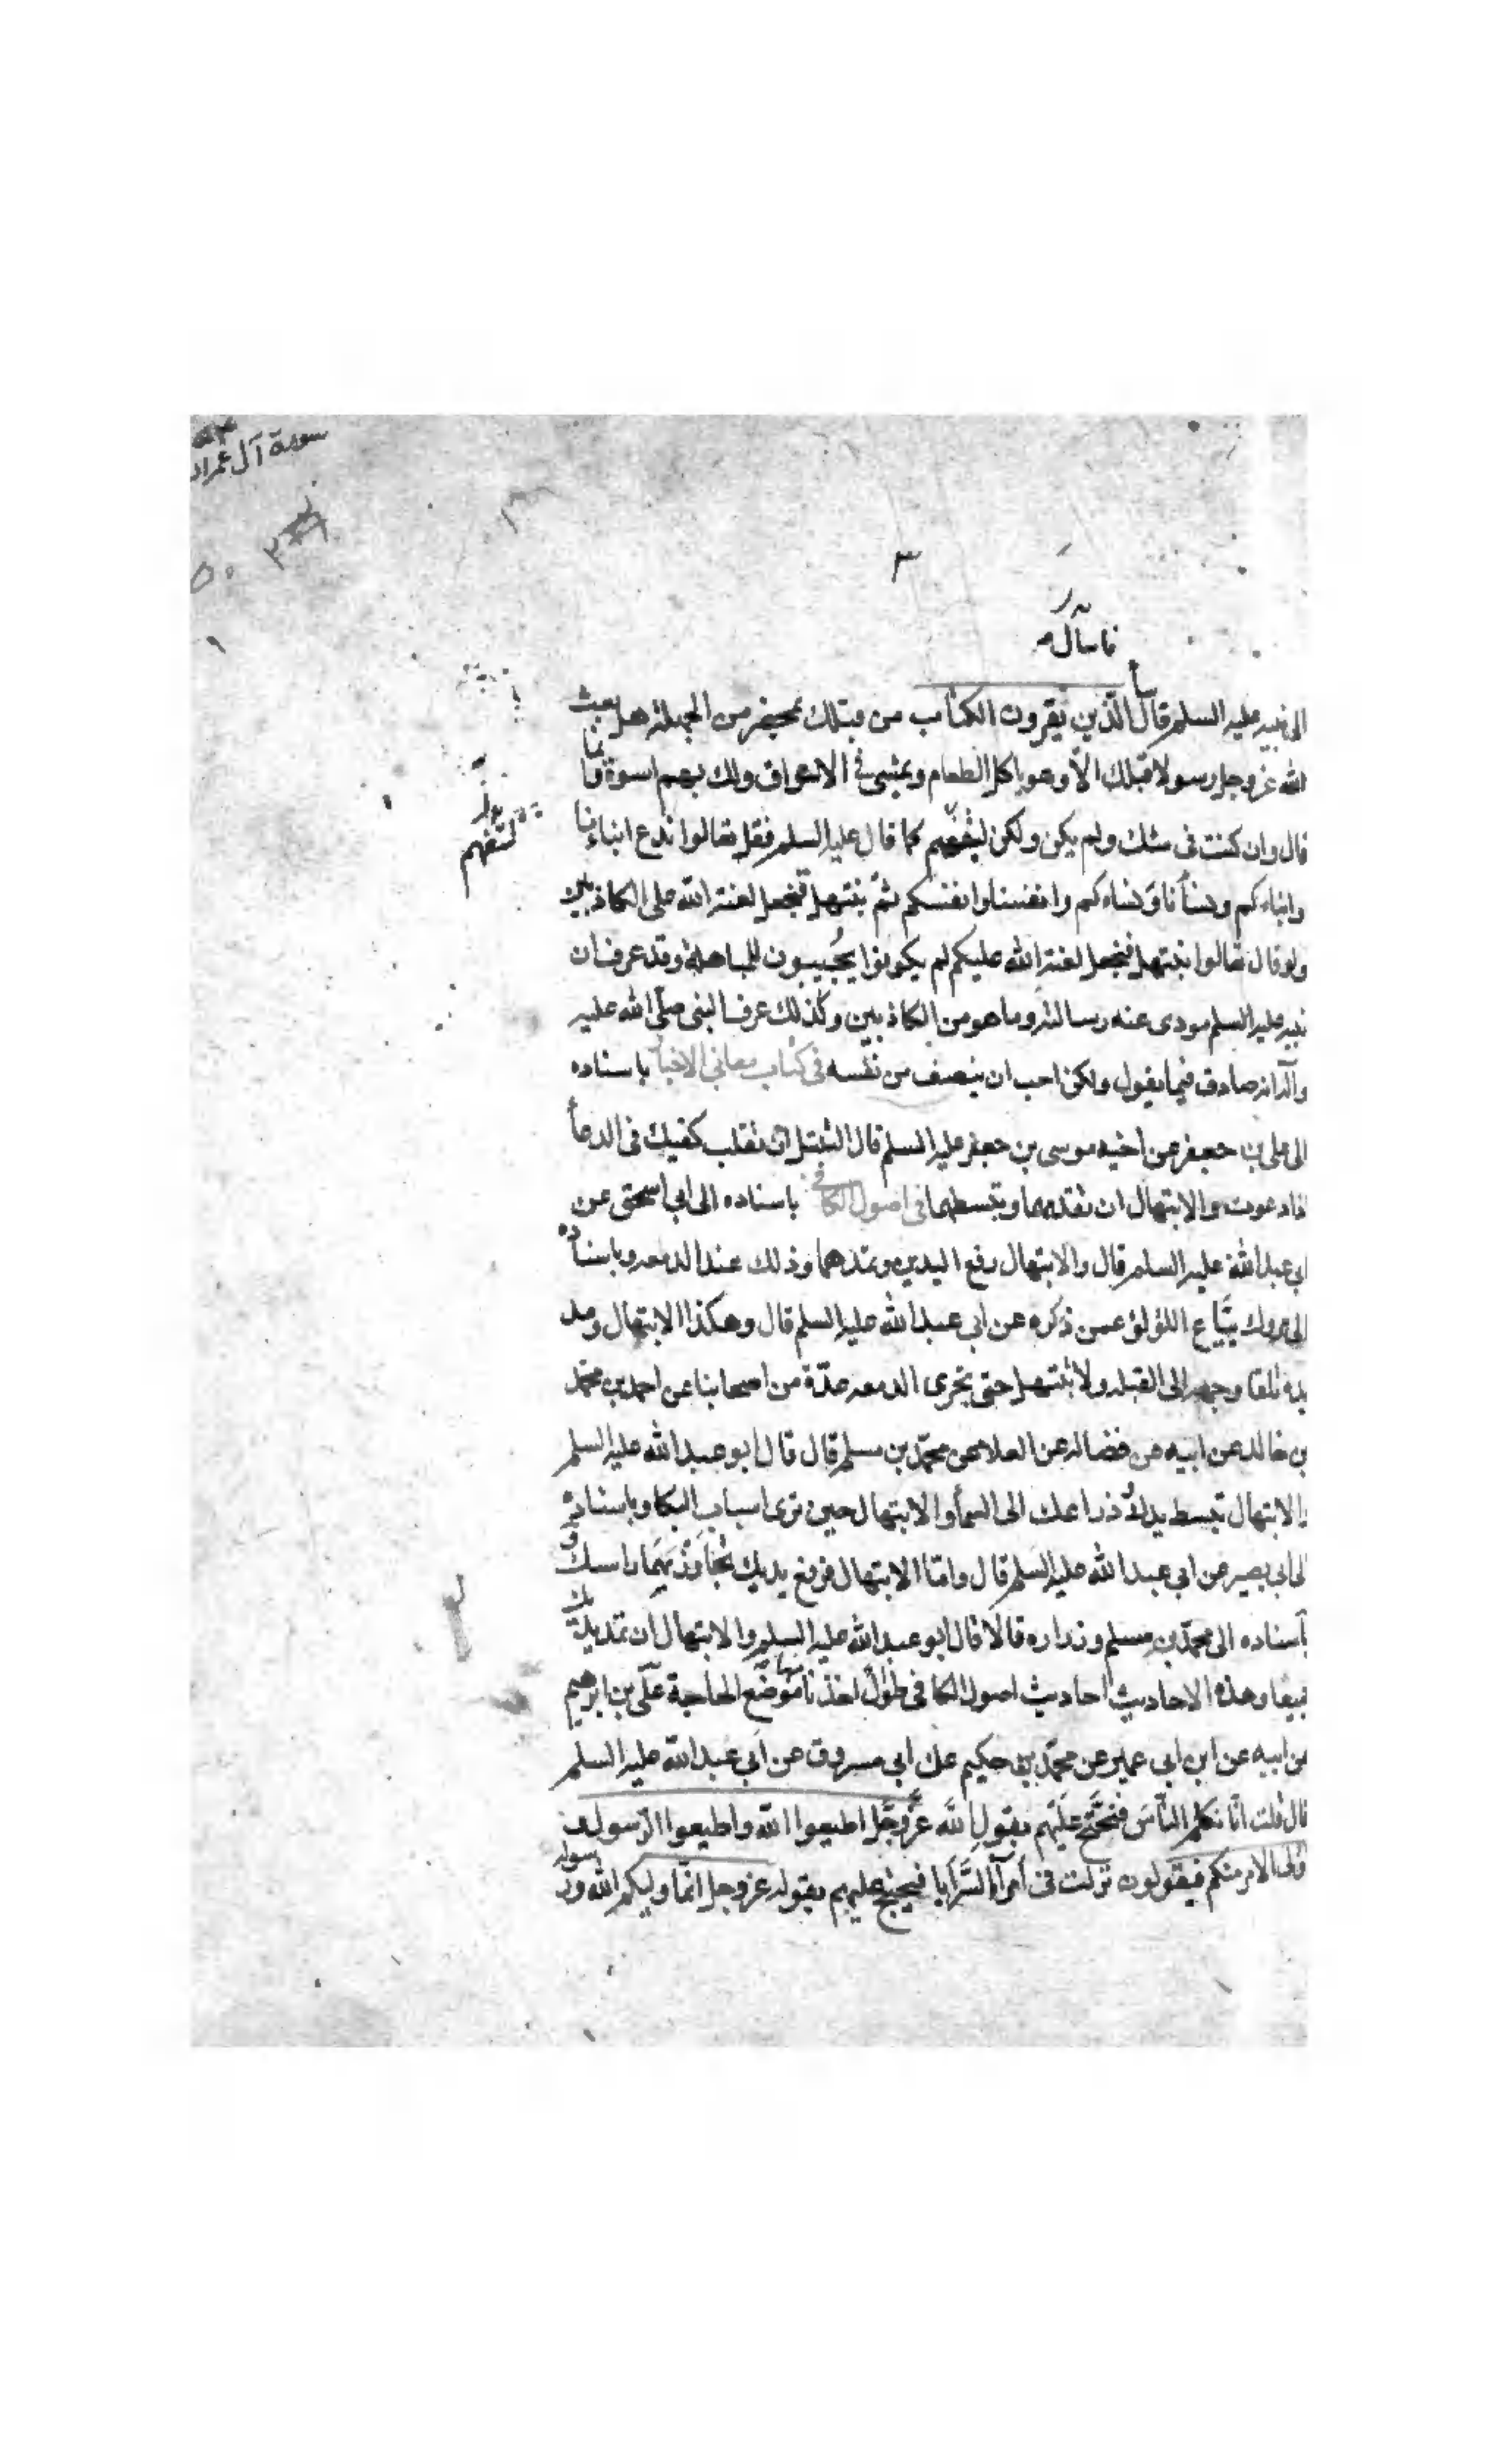 سورة آل عمران
٣
فاسأل
الى نبيه عليه السلم قال الذين يقرون الكتاب من قبلك بمحضر من الجهلة هل بعث
الله عز وجل رسولا قبلك الا وهو ياكل الطعام ويمشى فى الاسواق ولك بهم اسوة وانما
قال وان كنت فى شك ولم يكن ولكن ليفهم كما قال عليه السلم فقل تعالوا ندع ابناءنا
لتفهم
وابناءكم ونسأنا ونساءكم وانفسنا وانفسكم ثم نبتهل فنجعل لعنة الله على الكاذبين
ولو قال تعالوا نبتهل فنجعل لعنة الله عليكم لم يكونوا يجيبون للمباهلة وقد عرف ان
نبيه عليه السلم مودى عنه رسالته وما هو من الكاذبين وكذلك عرف النبى صلى الله عليه
وآله انه صادق فيما يقول ولكن احب ان ينصف من نفسه فى كتاب معانى الاخبا باسناده
الى على بن جعفر عن اخيه موسى بن جعفر عليه السلم قال التبتل ان تقلب كفيك فى الدعأ
اذا دعوت والابتهال ان تقدمهما وتبسطهما فى اصول الكافى باسناده الى ابى اسحق عن
ابى عبد الله عليه السلم قال والابتهال رفع اليدين وتمدهما وذلك عند الدمعه وباسناده
الى مروك بياع اللؤلؤ عمن ذكره عن ابى عبد الله عليه السلم قال وهكذا الابتهال ومد
يده تلقا وجهه الى القبله ولا تبتهل حتى تجرى الدمعه عدة من اصحابنا عن احمد بن محمد
بن خالد عن ابيه عن فضاله عن العلا عن محمد بن مسلم قال قال ابو عبد الله عليه السلم
والابتهال تبسط يدك وذراعك الى السمأ والابتهال حين ترى اسباب البكا وباسناده
الى ابى بصير عن ابى عبد الله عليه السلم قال واما الابتهال فرفع يديك تجاوز بهما راسك و
باسناده الى محمد بن مسلم وزراره قالا قال ابو عبد الله عليه السلم والابتهال ان تمد يديك
جميعا وهذه الاحاديث احاديث اصول الكافى طوال اخذنا منها موضع الحاجة على بن ابرهيم
عن ابيه عن ابن ابى عمير عن محمد بن حكيم عن ابى مسروق عن ابى عبد الله عليه السلم
قال قلت انا نكلم الناس فنحتج عليهم بقول الله عز وجل اطيعوا الله واطيعوا الرسول
واولى الامر منكم فيقولون نزلت فى امرآء السرايا فيحتج عليهم بقوله عز وجل انما وليكم الله ورسوله